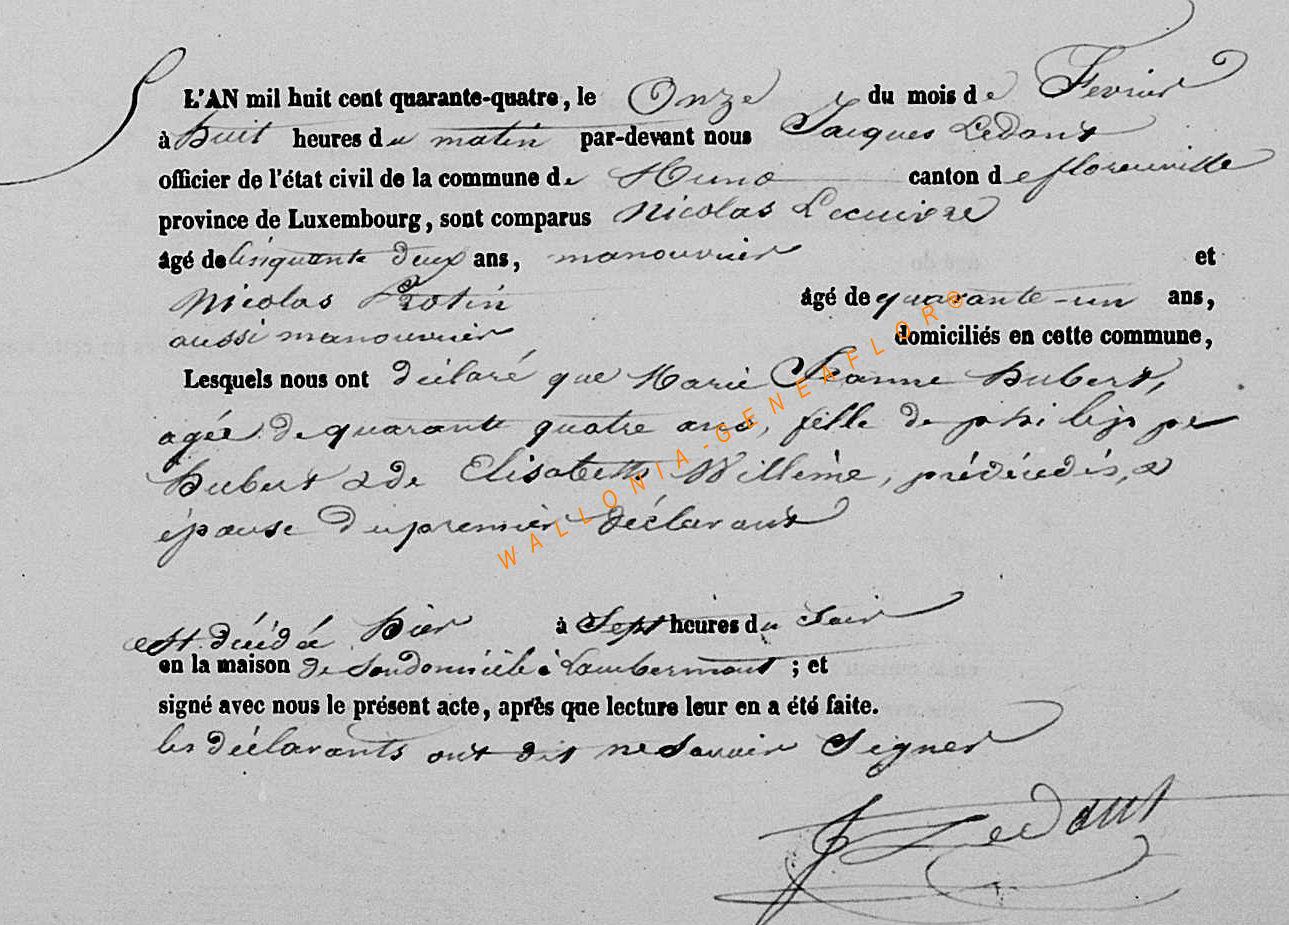 L'AN mil huit cent quarante-quatre, le Onze du mois de Fevrier
à huit heures du matin par-devant nous Jacques Ledant
officier de l'état civil de la commune de Muno canton de florenville
province de Luxembourg, sont comparus Nicolas Lecuivre
âgé de Cinquante deux ans, manouvrier et
Nicolas Protin âgé de quarante-un ans,
aussi manouvrier domiciliés en cette commune,
Lesquels nous ont déclaré que Marie Jeanne hubert,
agée de quarante quatre ans, fille de philippe
hubert & de Elisabeth Willème, prédécédés, &
épouse du premier déclarant
est décédée hier à Sept heures du Soir
en la maison de Son domicile à Lambermont ; et
signé avec nous le présent acte, après que lecture leur en a été faite.
les déclarants ont dit ne Savoir Signer
J Ledant
WALLONIA-GENEAFLOR®